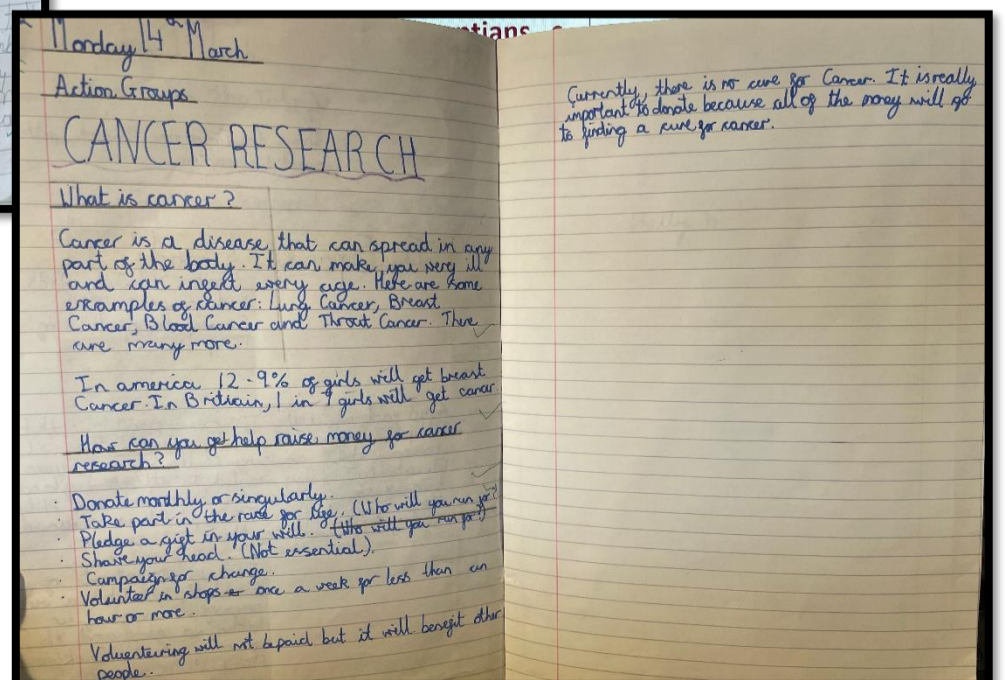 tians
Monday 14th March
Action Groups
CANCER RESEARCH
What is cancer?
Cancer is a disease that can spread in any
part of the body. It can make you very ill
and can infect every age. Here are some
examples of cancer: Lung Cancer, Breast
Cancer, Blood Cancer and Throut Cancer. There
are many more.
In america 12.9% of girls will get breast
Cancer. In Britiain, 1 in 7 girls will get cancer
How can you get help raise money for cancer
research?
· Donate monthly or singularly.
· Take part in the race for life. (Who will you run for?)
· Pledge a gift in your will. (Who will you run for?)
· Shave your head. (Not essential).
· Campaign for change.
· Volunteer in shops once a week for less than an
hour or more.
Voluenteering will not be paid but it will benefit other
people.
Currently, there is no cure for Cancer. It is really
important to donate because all of the money will go
to finding a cure for cancer.